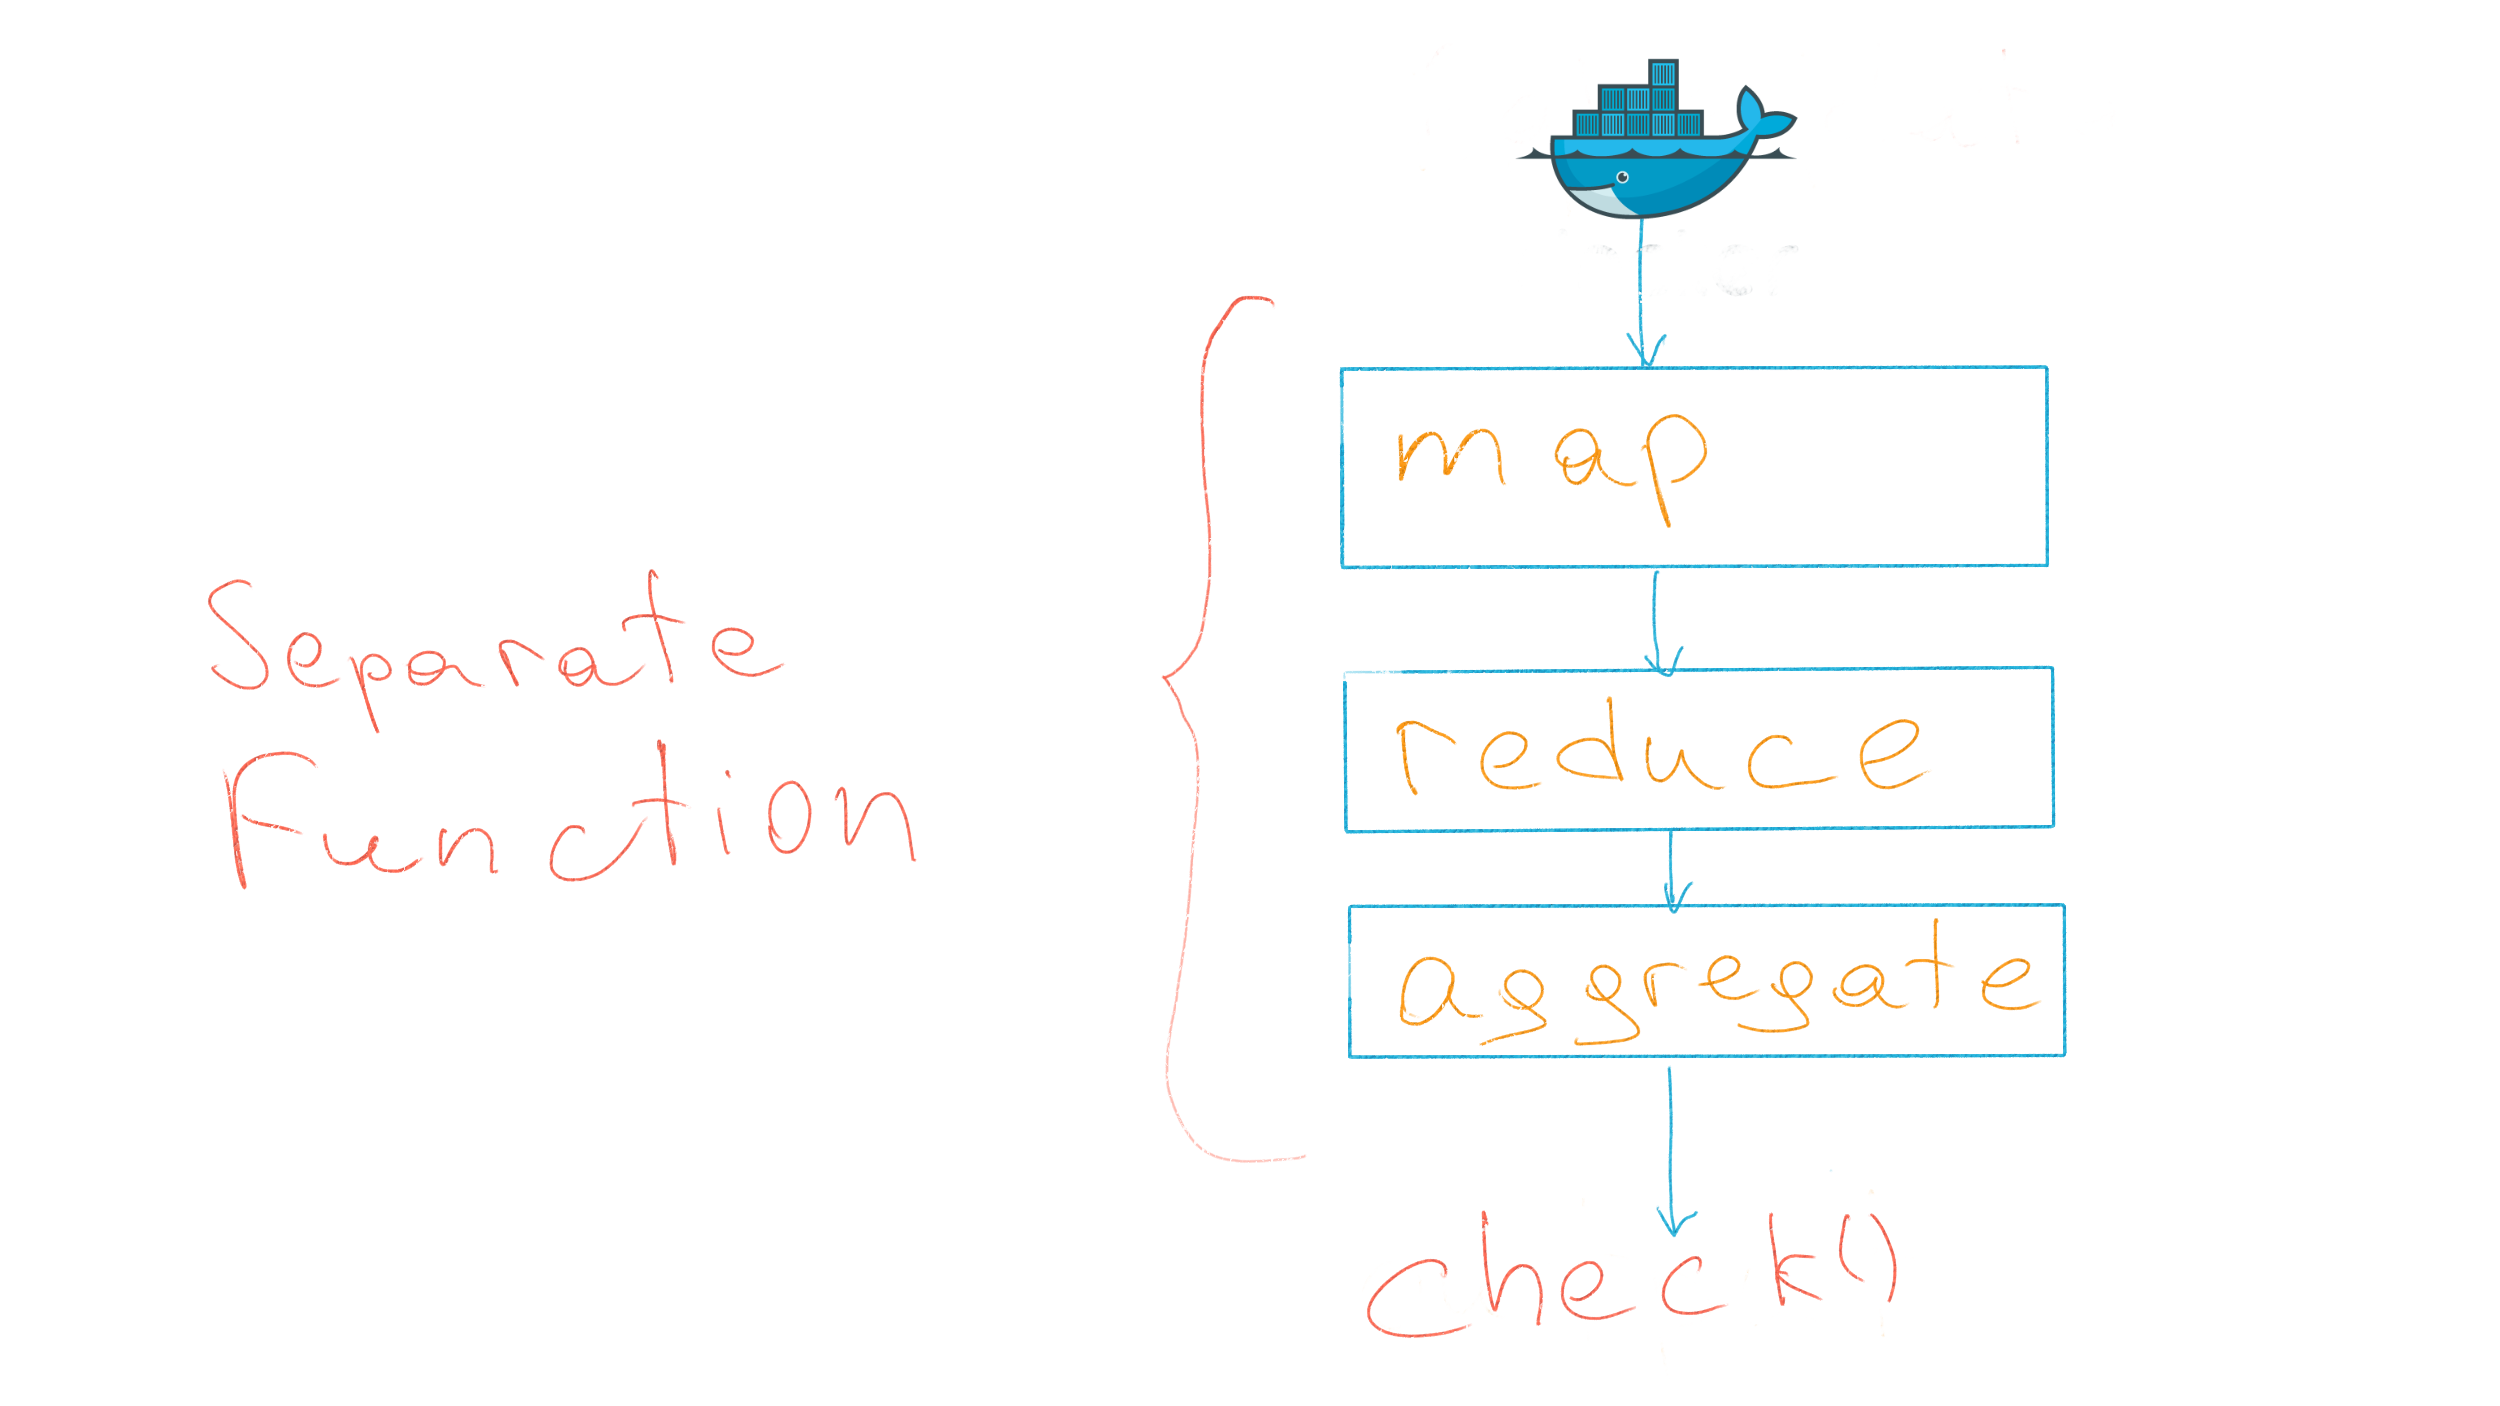 map
Separate
Function
reduce
aggregate
check()